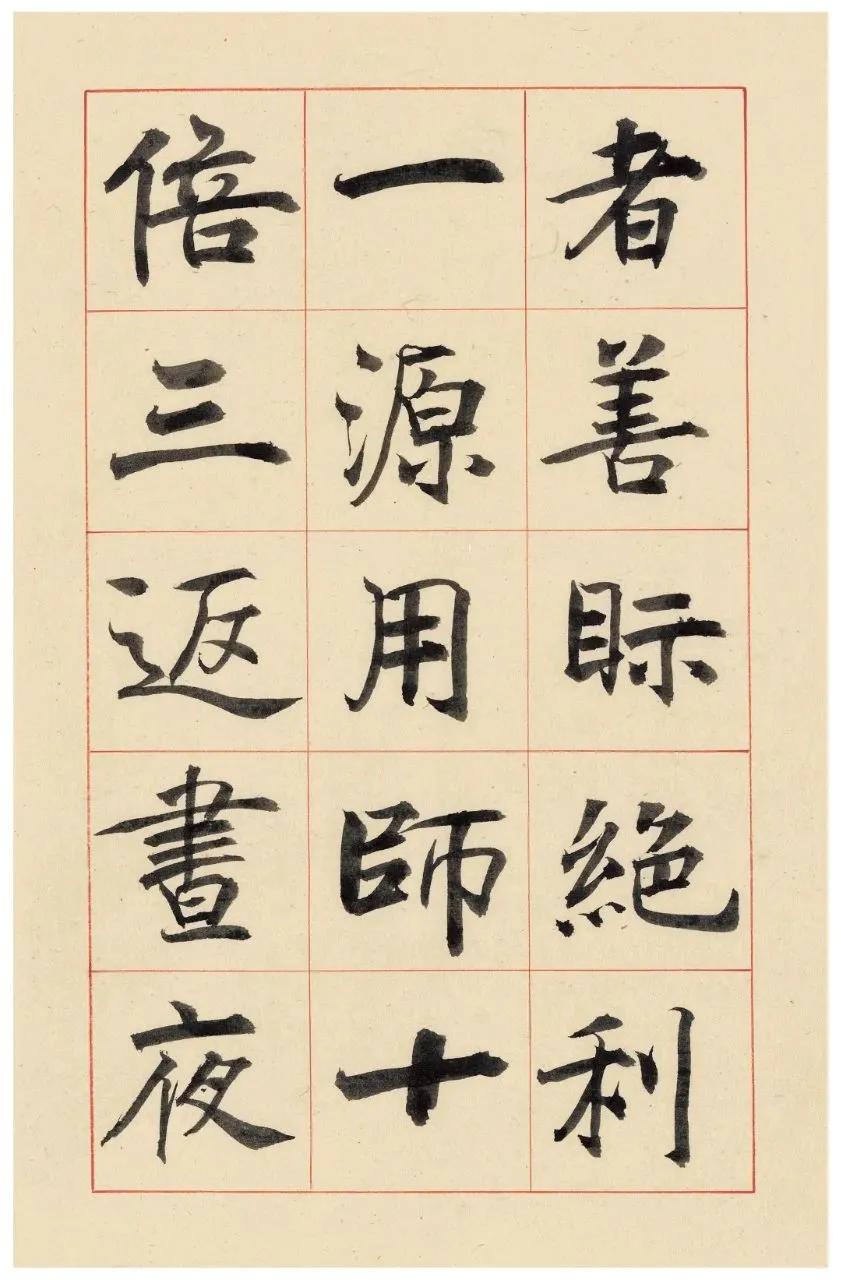 者善眎絕利
一源用師十
倍三返晝夜